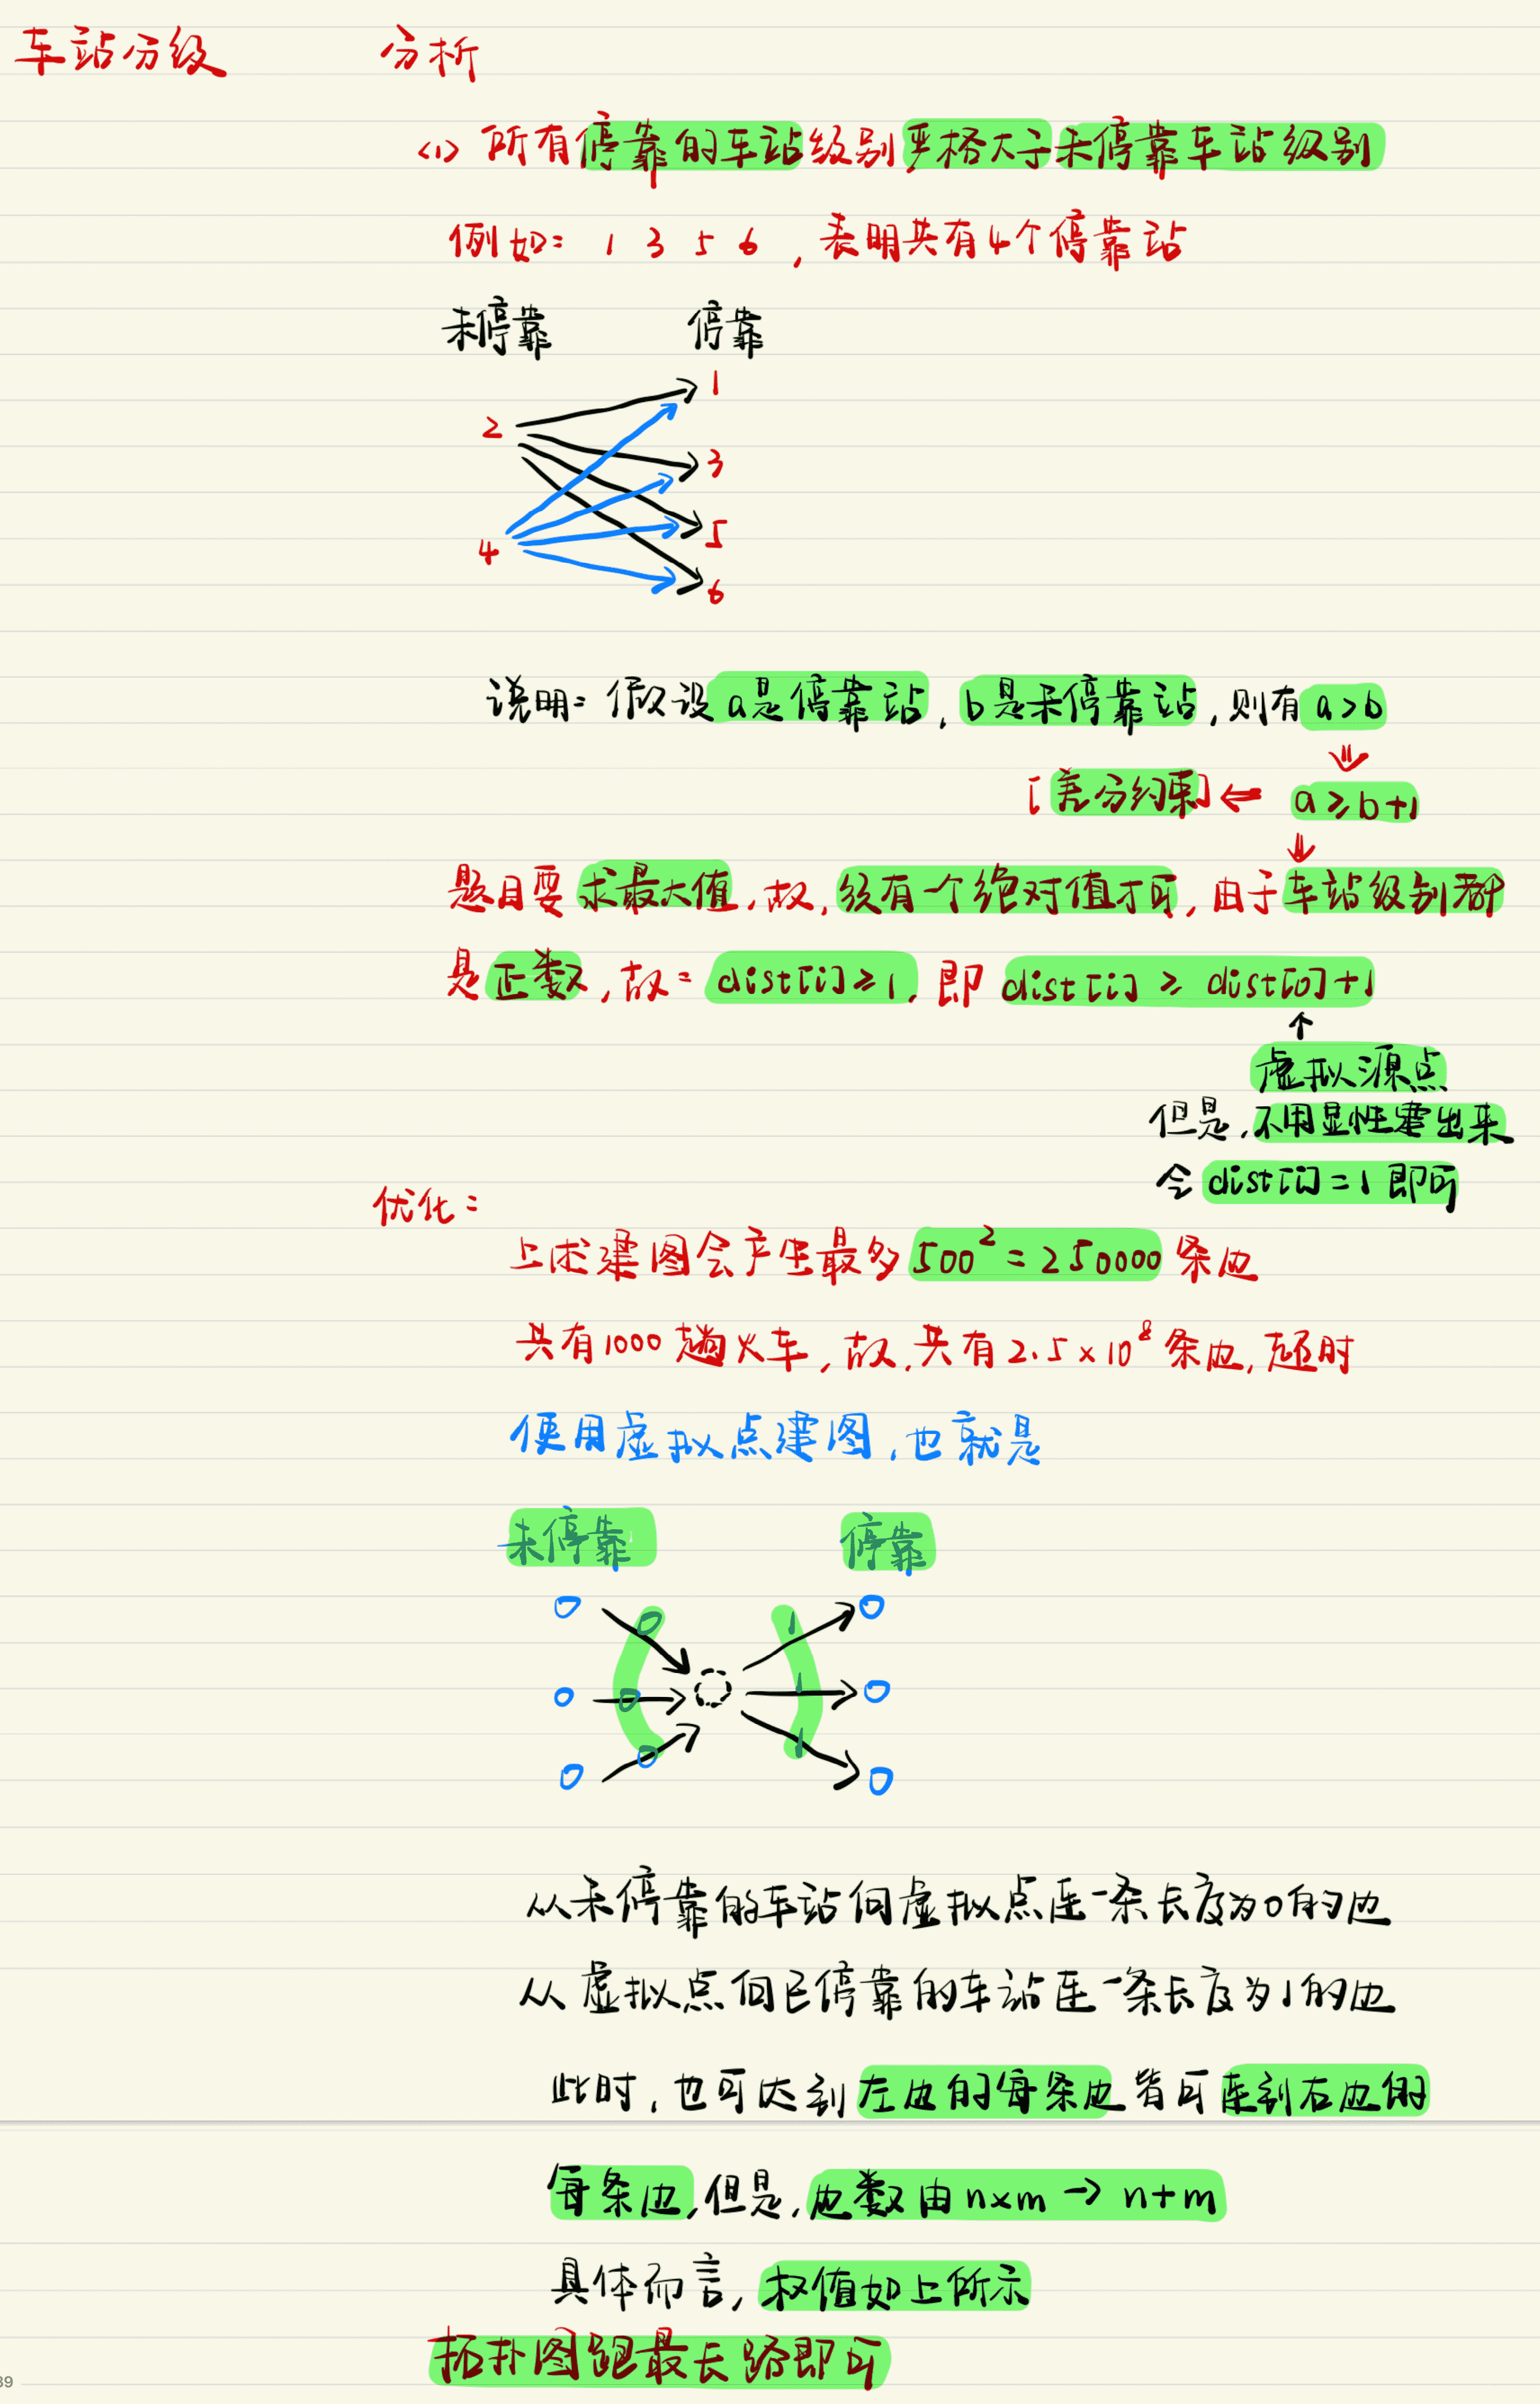 车站分级 分析
(1) 所有停靠的车站级别严格大于未停靠车站级别
例如: 1 3 5 6 , 表明共有4个停靠站
未停靠 停靠
1
2
3
5
4
6
说明: 假设a是停靠站, b是未停靠站, 则有 a>b
⇓
[差分约束] ⇐ a≥b+1
↓
题目要求最大值, 故, 须有一个绝对值才可, 由于车站级别都
是正数, 故: dist[i]≥1, 即 dist[i] ≥ dist[0]+1
↑
虚拟源点
但是, 不用显性建出来
令 dist[i]=1 即可
优化:
上述建图会产生最多 500²=250000 条边
共有1000 趟火车, 故, 共有 2.5×10⁸ 条边, 超时
使用虚拟点建图, 也就是
未停靠 停靠
0 1
0 1
0 1
从未停靠的车站向虚拟点连一条长度为0的边
从虚拟点向已停靠的车站连一条长度为1的边
此时, 也可达到左边的每条边皆可连到右边的
每条边, 但是, 边数由 n×m → n+m
具体而言, 权值如上所示
拓扑图跑最长路即可
39